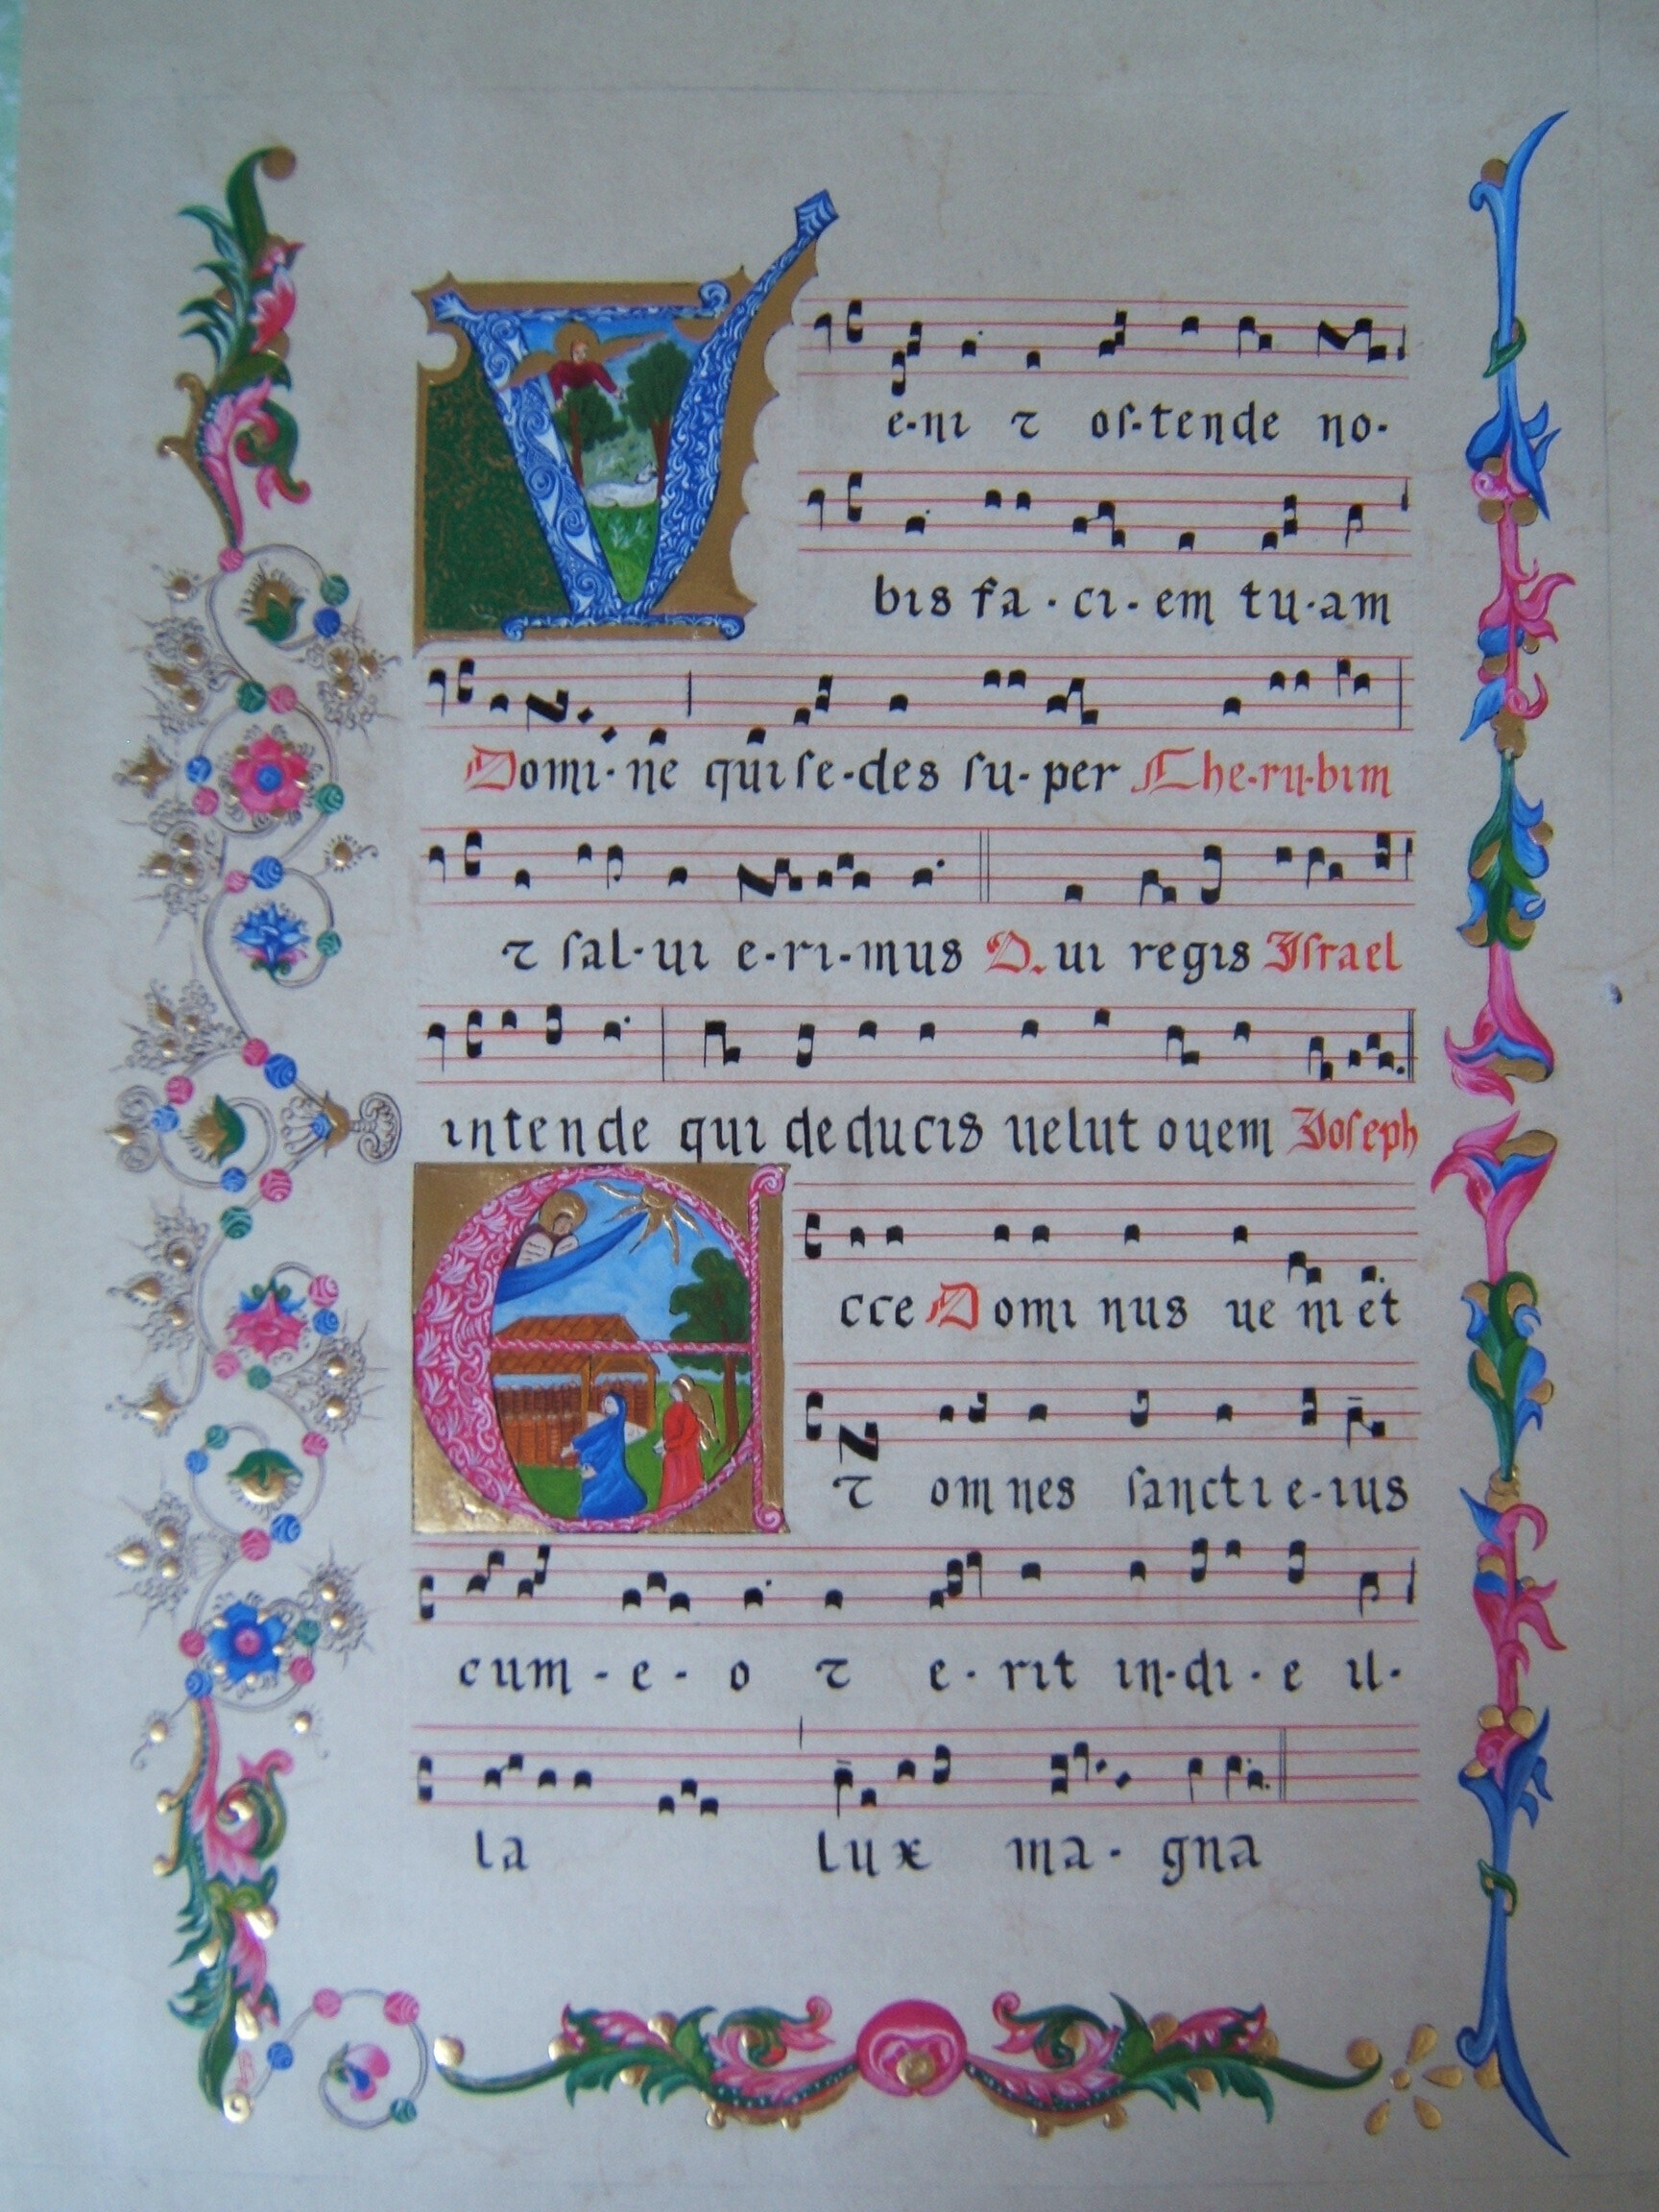 Ve-ni ⁊ oſ-tende no-
bis fa-ci-em tu-am
Domi-ne qui ſe-des ſu-per Che-ru-bim
⁊ ſal-ui e-ri-mus Q.ui regis Iſrael
intende qui deducis uelut ouem Ioſeph
Ecce Domi nus ue ni et
⁊ om nes ſancti e-ius
cum-e-o ⁊ e-rit in-di-e il-
la lux ma-gna